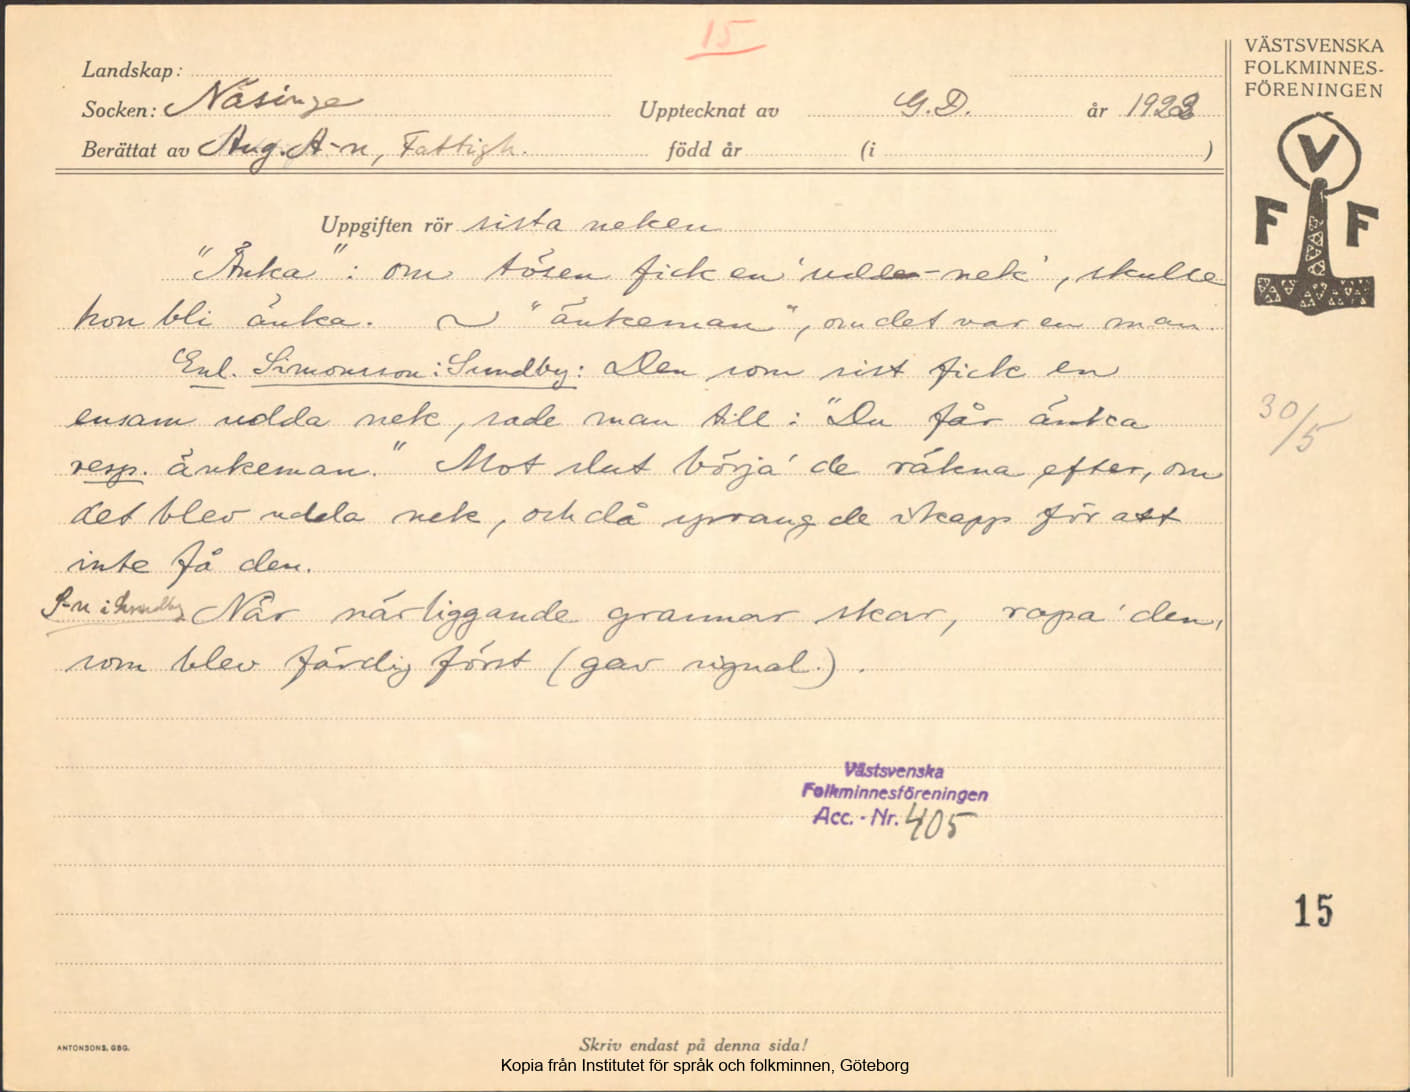 15
Landskap:
Socken: Näsinge Upptecknat av G.D. år 1923
Berättat av Aug. A-n, Fattigh. född år (i )
VÄSTSVENSKA
FOLKMINNES-
FÖRENINGEN
V
F F
Uppgiften rör sista neken
"Änka": om tösen fick en 'udde-nek', skulle
hon bli änka. ~ "änkeman", om det var en man.
Enl. Simonsson i Sundby: Den som sist fick en
ensam udda nek, sade man till: "Du får änka
resp. änkeman." Mot slut börja' de räkna efter, om
det blev udda nek, och då sprang de i kapp för att
inte få den.
S-n i Sundby När närliggande grannar skar, ropa' den,
som blev färdig först (gav signal.).
30/5
Västsvenska
Folkminnesföreningen
Acc. - Nr. 405
15
ANTONSONS, GBG.
Skriv endast på denna sida!
Kopia från Institutet för språk och folkminnen, Göteborg